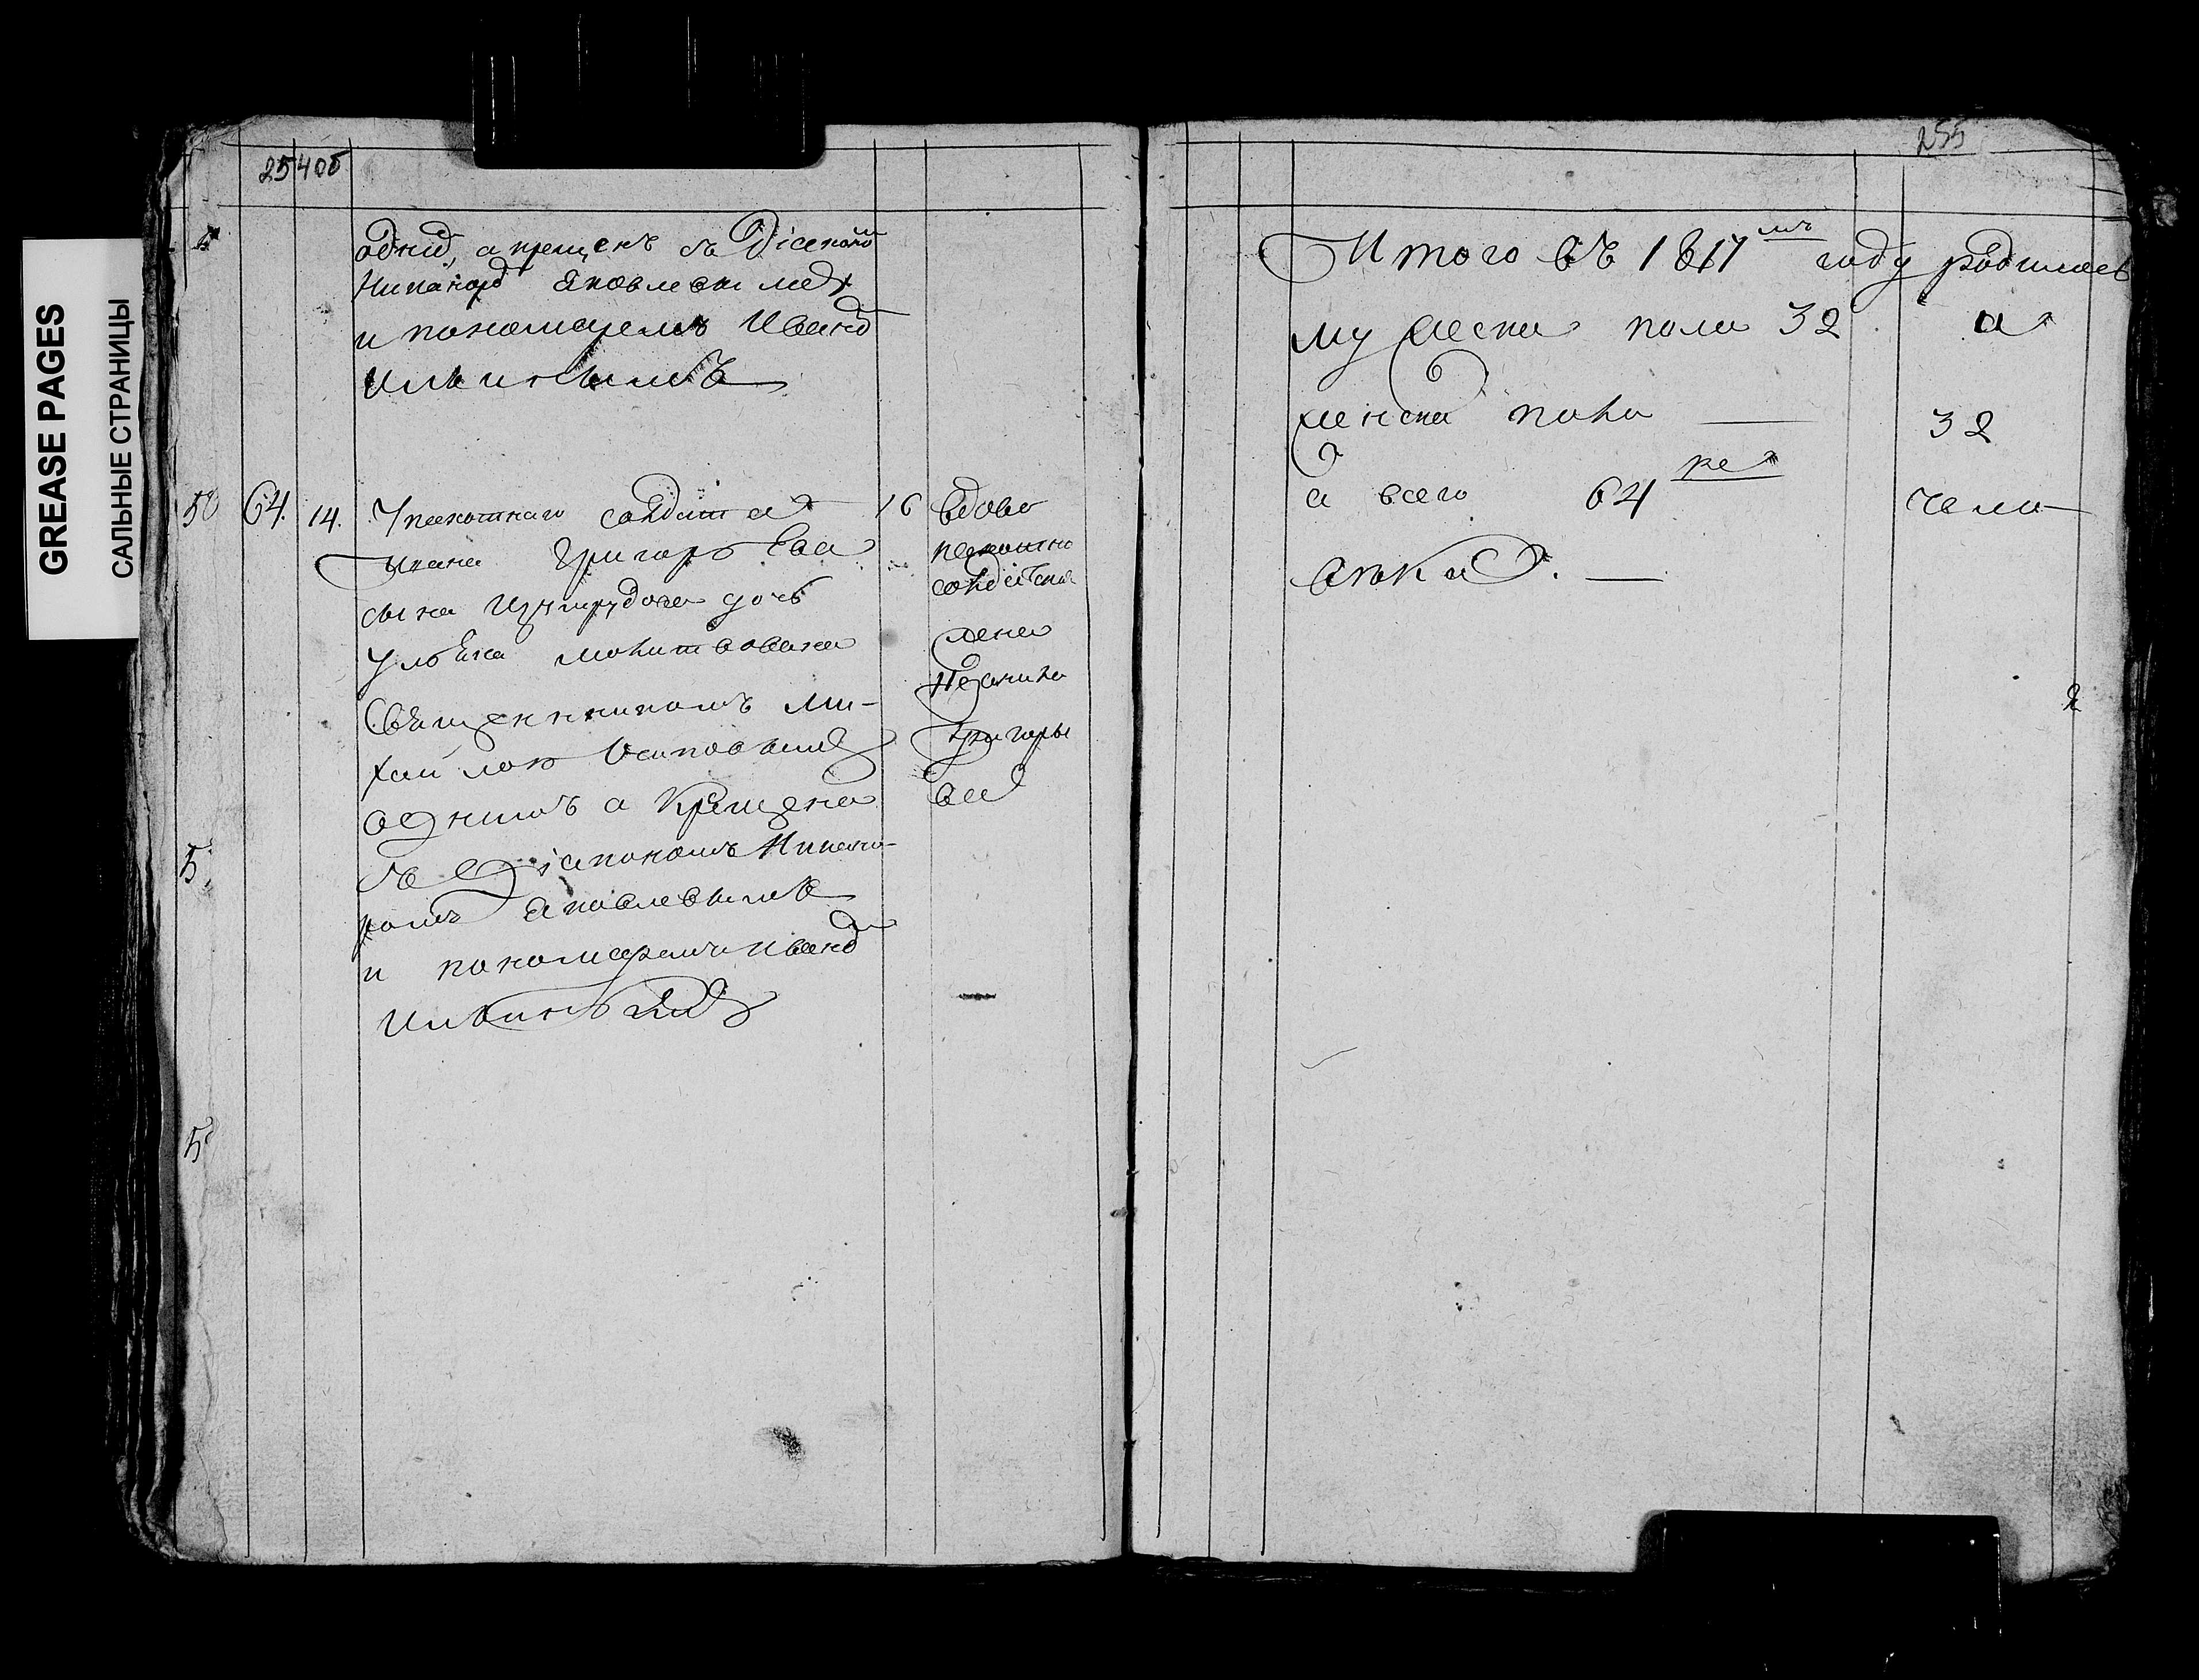 GREASE PAGES
САЛЬНЫЕ СТРАНИЦЫ
254об
однїм, а крещенъ съ Дїаконом
Никаноромъ Яковлевымъ
и пономаремъ Иваномъ
Ильинымъ
64. 14. У пехотнаго солдата 16
Ивана Григорьева
сына дочь
Ульяна молитвована
Священникомъ Ми-
хайлою Осиповымъ
однимъ а крещена
съ Дїакономъ Никано-
ромъ Яковлевымъ
и пономаремъ Иваном
Ильинымъ
вдова
пехотна
солдатска
жена
Григорье
ва
255
Итого въ 1817мъ году родилось
мужеска пола 32 а
женска пола — 32
а всего 64ре чело
века. —